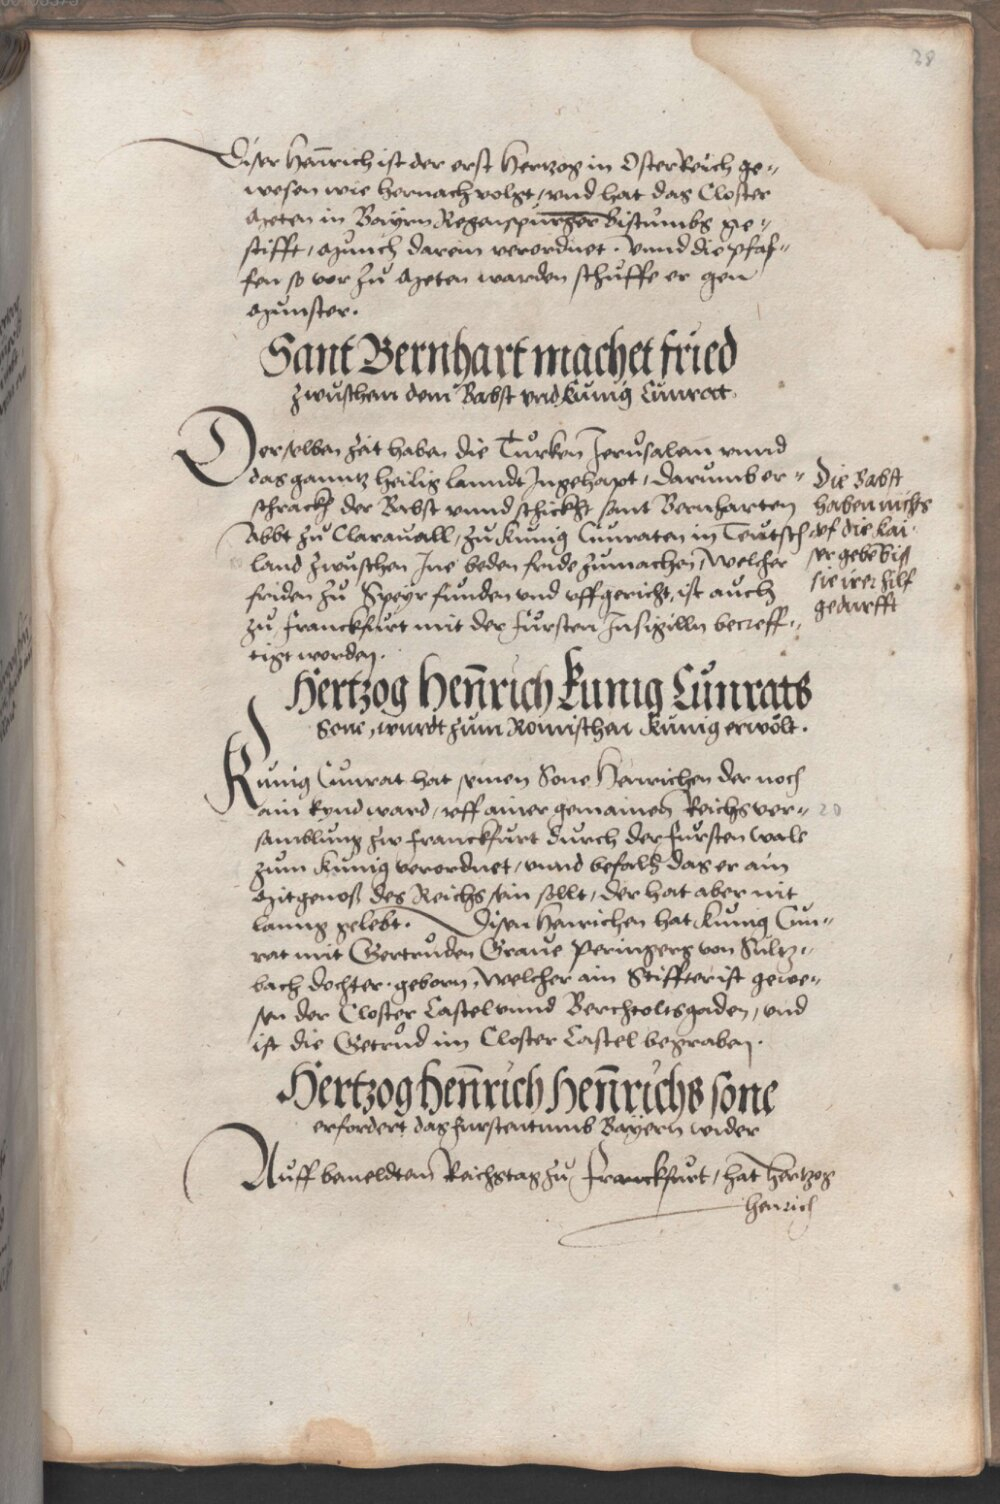 38
Diser Henrich ist der erst Hertzog in Osterreich ge„
wesen wie hernach volgt, vnd hat das Closter
Meten in Bayrn Regenspurger Bistumbs ge„
stifft, Munch darein verordnet. Vnnd die pfaf„
fen so vor zu Meten warden schuffe er gen
Munster.
Sant Bernhart machet fried
zwuschem dem Babst vnd Kunig Cunratt.
Derselben zeit haben die Turken Jerusalem vnnd
das ganntz heilig lanndt Ingehapt, darumb er„
schrack der Babst vnnd schickht sant Bernharten
Abbt zu Clarauall, zu Kunig Cunraten in Teutsch
land zwuschen Jne beden fride zumachen, Welcher
friden zu Speyr funden vnd vffgericht, ist auch
zu Franckfurt mit der Fursten Jnsigilln becreff„
tigt worden.
Die Babst
haben nichts
vf die kai
ser geben biß
sie irer hilf
gedurfft
Hertzog Henrich Kunig Cunrats
Sone, wurdt zum Romischen Kunig erwölt.
Kunig Cunrat hat seinen Sone Henrichen der noch
ain kynd ward, vff ainer gemainen Reichs ver„
20
samblung zw Franckfurt durch der Fursten Wale
zum Kunig verordnet, vnnd befalh das er ain
Mitgenoß des Reichs sein sollt, der hat aber nit
lanng gelebt. Disen Henrichen hat Kunig Cun„
rat mit Gertruden Graue Peringers von Sultz„
bach dochter. geborn, Welcher ain Stiffter ist gewe„
sen der Closter Castel vnnd Berchtoltsgaden, vnd
ist die Getrud im Closter Castel begraben.
Hertzog Henrich Henrichs sone
erfordert das Furstentumb Bayern wider
Auff bemeldtem Reichstag zu Franckfurt, hat Hertzog
Henrich